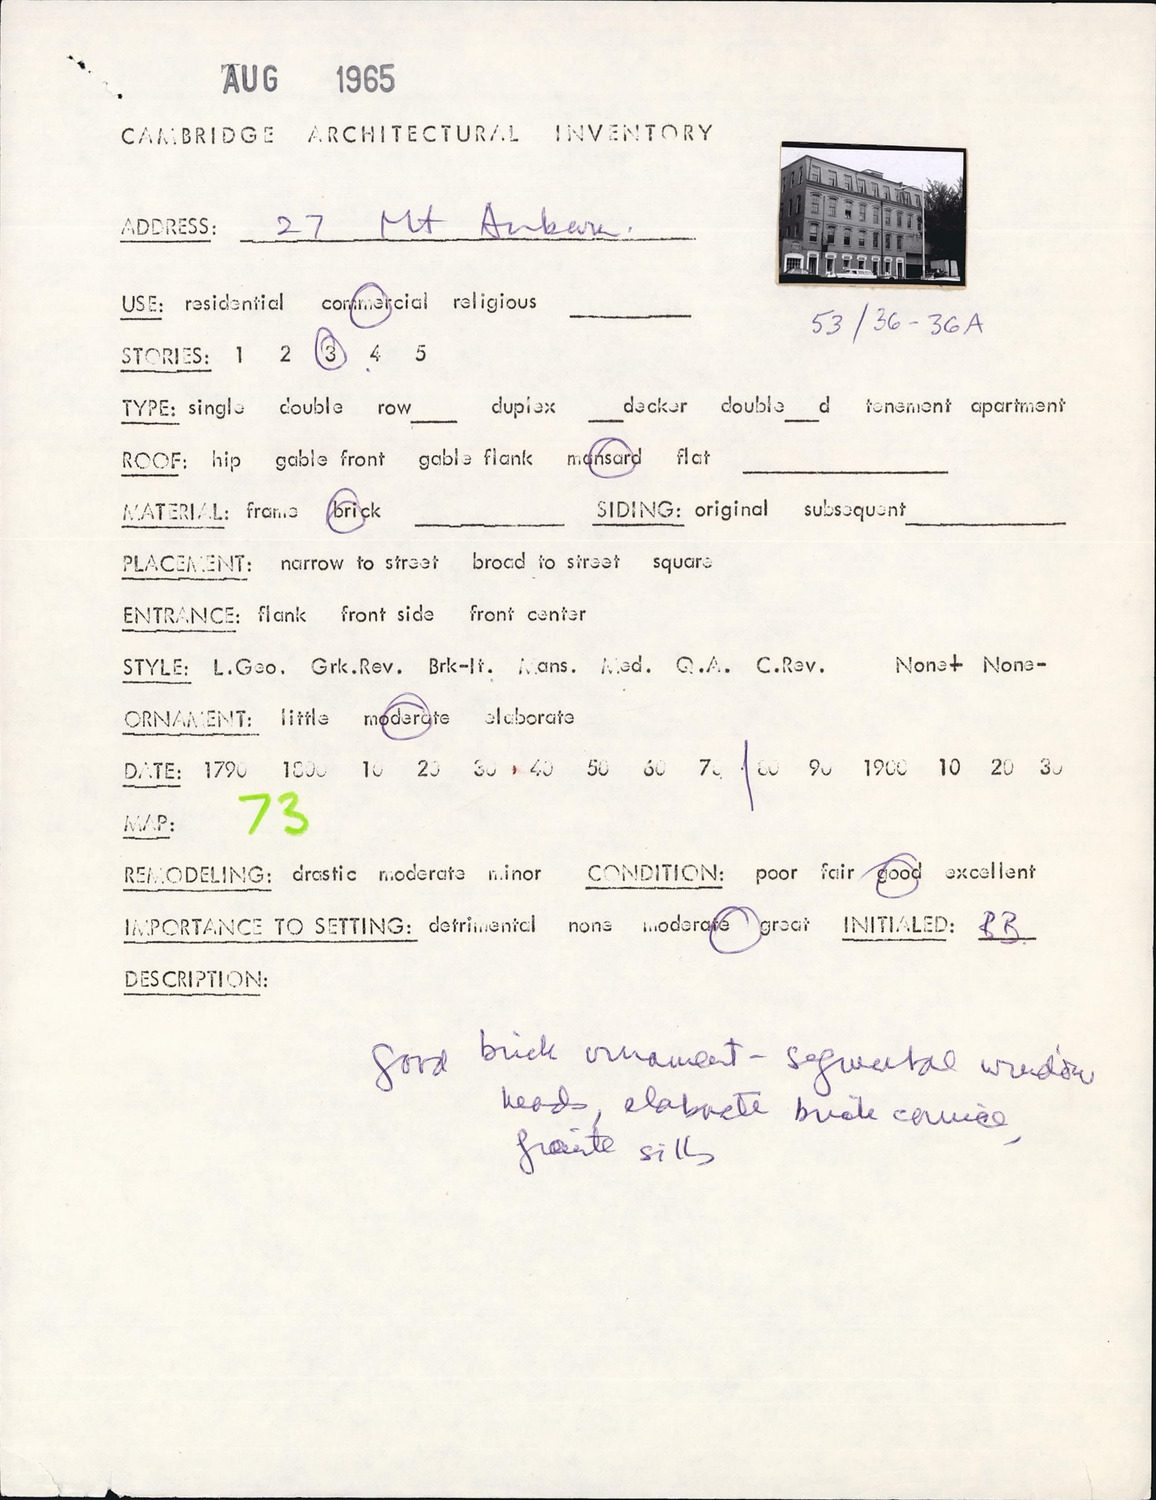 AUG 1965
CAMBRIDGE ARCHITECTURAL INVENTORY
ADDRESS: 27 Mt Auburn.
53/36-36A
USE: residential commercial religious
STORIES: 1 2 3 4 5
TYPE: single double row____ duplex ____decker double____d tenement apartment
ROOF: hip gable front gable flank mansard flat
MATERIAL: frame brick ____ SIDING: original subsequent____
PLACEMENT: narrow to street broad to street square
ENTRANCE: flank front side front center
STYLE: L.Geo. Grk.Rev. Brk-It. Mans. Med. Q.A. C.Rev. None+ None-
ORNAMENT: little moderate elaborate
DATE: 1790 1800 10 20 30 40 50 60 70 80 90 1900 10 20 30
MAP: 73
REMODELING: drastic moderate minor CONDITION: poor fair good excellent
IMPORTANCE TO SETTING: detrimental none moderate great INITIALED: BB
DESCRIPTION:
good brick ornament - segmental window
heads, elaborate brick cornice,
granite sills